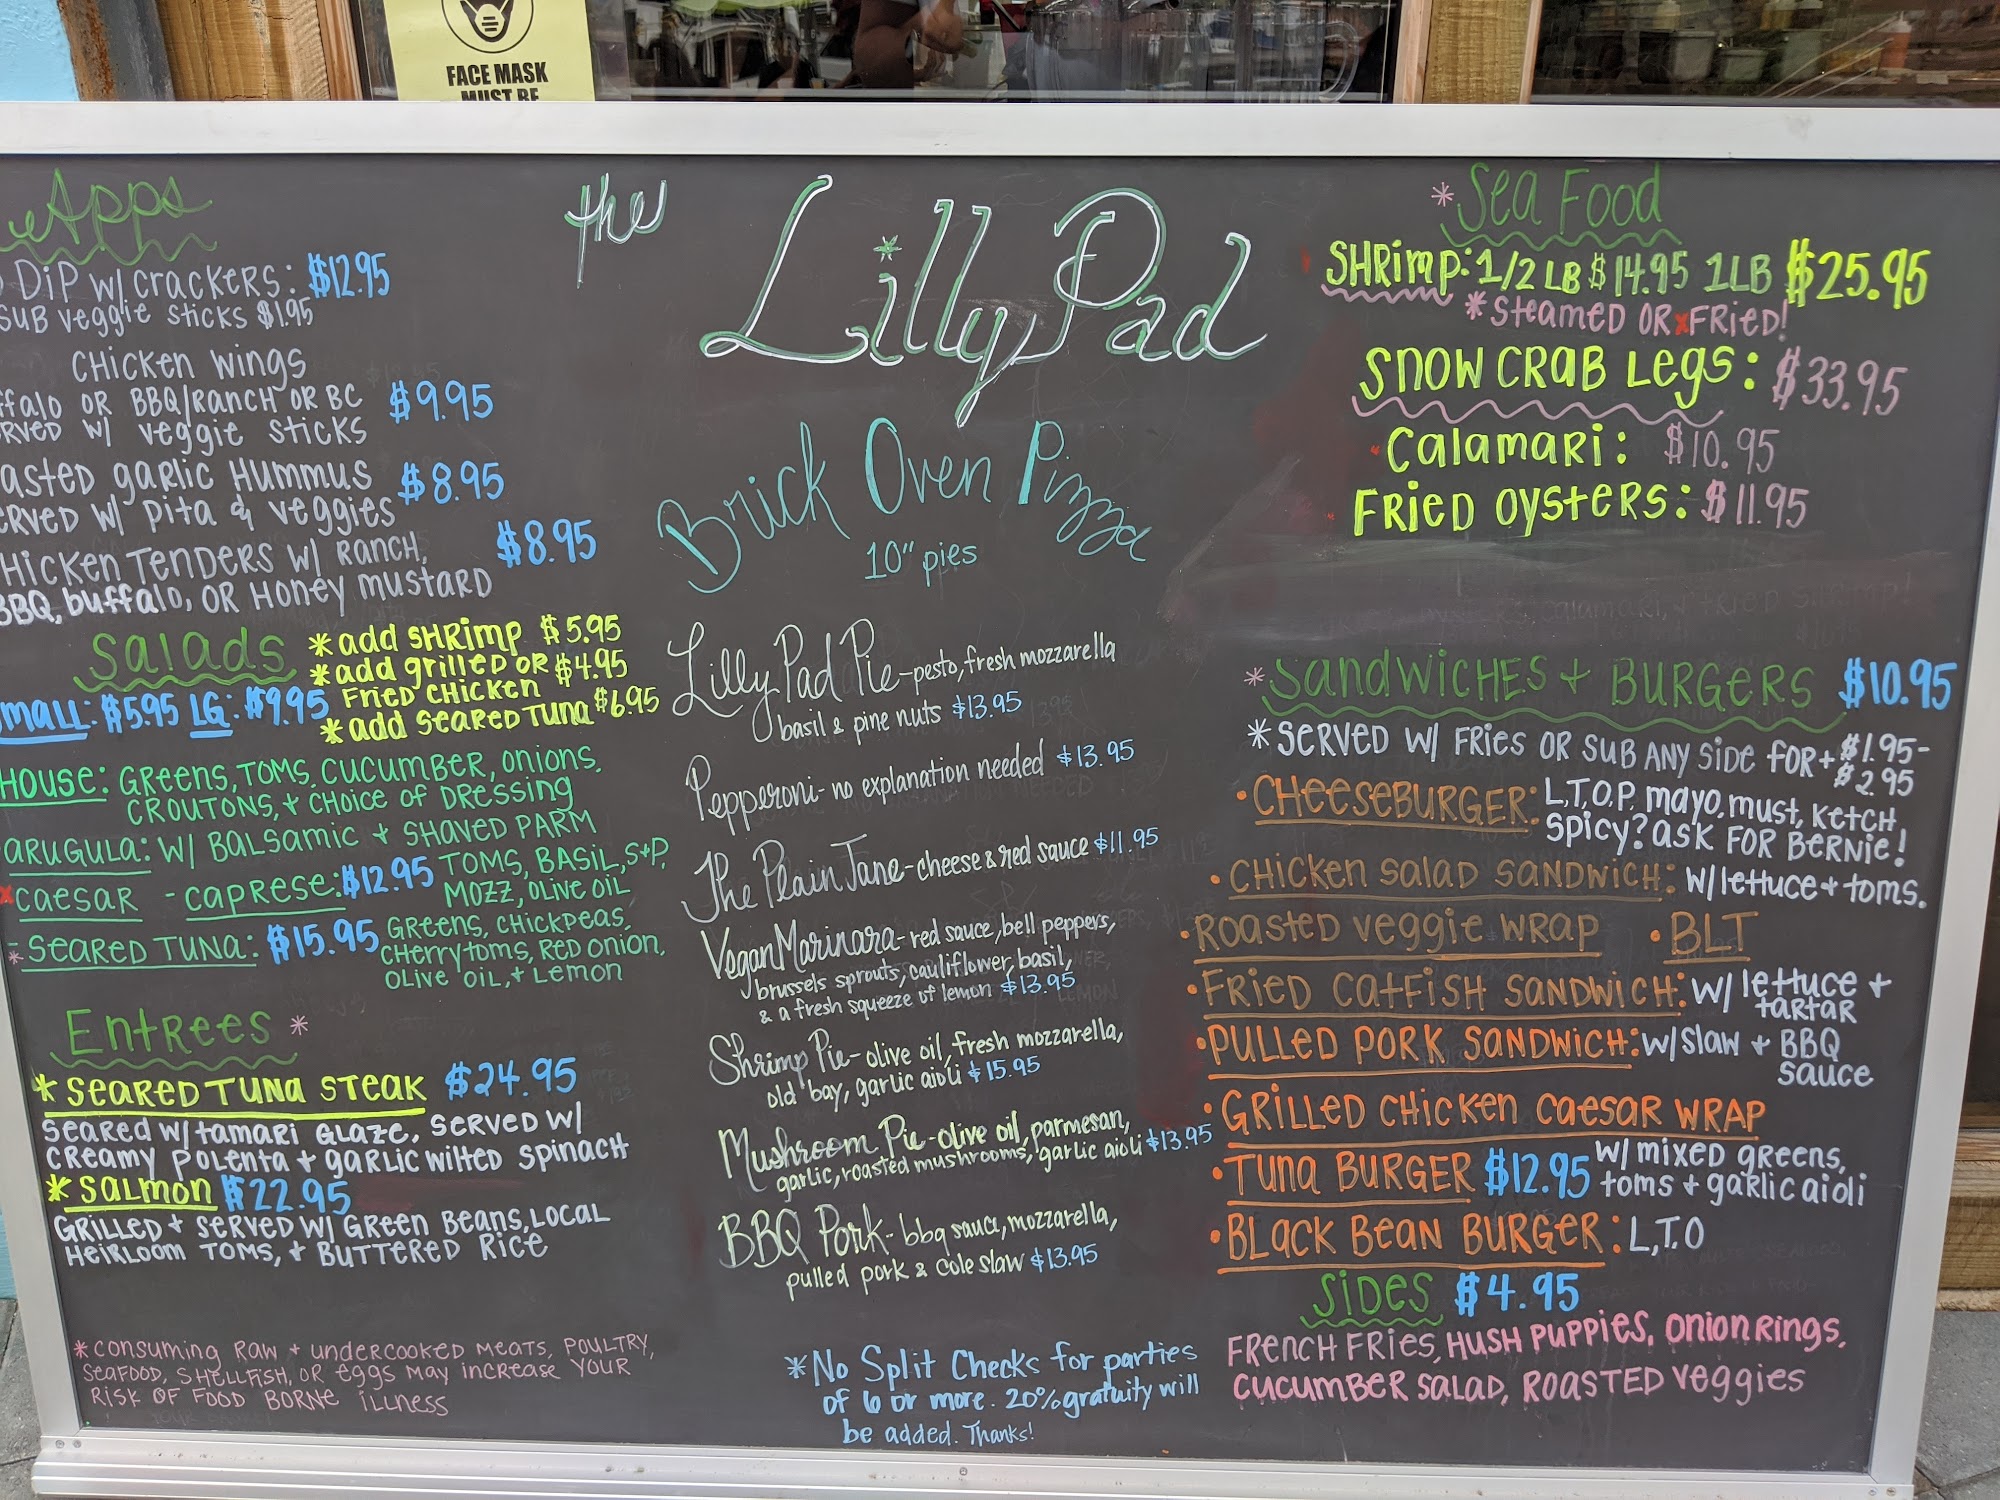 FACE MASK
MUST BE
Apps
DIP W/ CRACKERS: $12.95
SUB VEGGIE STICKS $1.95
CHICKEN WINGS
OR BBQ/RANCH OR BC $9.95
W/ VEGGIE STICKS
GARLIC HUMMUS $8.95
W/ PITA & VEGGIES
TENDERS W/ RANCH, $8.95
BBQ, BUFFALO, OR HONEY MUSTARD
SALADS
*ADD SHRIMP $5.95
*ADD GRILLED OR $4.95
FRIED CHICKEN
*ADD SEARED TUNA $6.95
$5.95 LG: $9.95
HOUSE: GREENS, TOMS, CUCUMBER, ONIONS,
CROUTONS, + CHOICE OF DRESSING
ARUGULA: W/ BALSAMIC + SHAVED PARM
*CAESAR - CAPRESE: $12.95 TOMS, BASIL, S+P,
MOZZ, OLIVE OIL
*- SEARED TUNA: $15.95 GREENS, CHICKPEAS,
CHERRY TOMS, RED ONION,
OLIVE OIL, + LEMON
ENTREES *
*SEARED TUNA STEAK $24.95
SEARED W/ TAMARI GLAZE, SERVED W/
CREAMY POLENTA + GARLIC WILTED SPINACH
*SALMON $22.95
GRILLED + SERVED W/ GREEN BEANS, LOCAL
HEIRLOOM TOMS, + BUTTERED RICE
*CONSUMING RAW + UNDERCOOKED MEATS, POULTRY,
SEAFOOD, SHELLFISH, OR EGGS MAY INCREASE YOUR
RISK OF FOOD BORNE ILLNESS
the Lilly Pad
Brick Oven Pizza
10" pies
Lilly Pad Pie - pesto, fresh mozzarella
basil & pine nuts $13.95
Pepperoni - no explanation needed $13.95
The Plain Jane - cheese & red sauce $11.95
Vegan Marinara - red sauce, bell peppers,
brussels sprouts, cauliflower, basil,
& a fresh squeeze of lemon $13.95
Shrimp Pie - olive oil, fresh mozzarella,
old bay, garlic aioli $15.95
Mushroom Pie - olive oil, parmesan,
garlic, roasted mushrooms, garlic aioli $13.95
BBQ Pork - bbq sauce, mozzarella,
pulled pork & cole slaw $13.95
*No Split Checks for parties
of 6 or more. 20% gratuity will
be added. Thanks!
*Sea Food
SHRIMP: 1/2 LB $14.95 1LB $25.95
*STEAMED OR *FRIED!
SNOW CRAB LEGS: $33.95
CALAMARI: $10.95
FRIED OYSTERS: $11.95
*SANDWICHES + BURGERS $10.95
*SERVED W/ FRIES OR SUB ANY SIDE FOR + $1.95-
$2.95
• CHEESEBURGER: L,T,O,P, MAYO, MUST, KETCH
SPICY? ASK FOR BERNIE!
• CHICKEN SALAD SANDWICH: W/ LETTUCE + TOMS.
• ROASTED VEGGIE WRAP • BLT
• FRIED CATFISH SANDWICH: W/ LETTUCE +
TARTAR
• PULLED PORK SANDWICH: W/ SLAW + BBQ
SAUCE
• GRILLED CHICKEN CAESAR WRAP
• TUNA BURGER $12.95 W/ MIXED GREENS,
TOMS + GARLIC AIOLI
• BLACK BEAN BURGER: L,T,O
SIDES $4.95
FRENCH FRIES, HUSH PUPPIES, ONION RINGS,
CUCUMBER SALAD, ROASTED VEGGIES